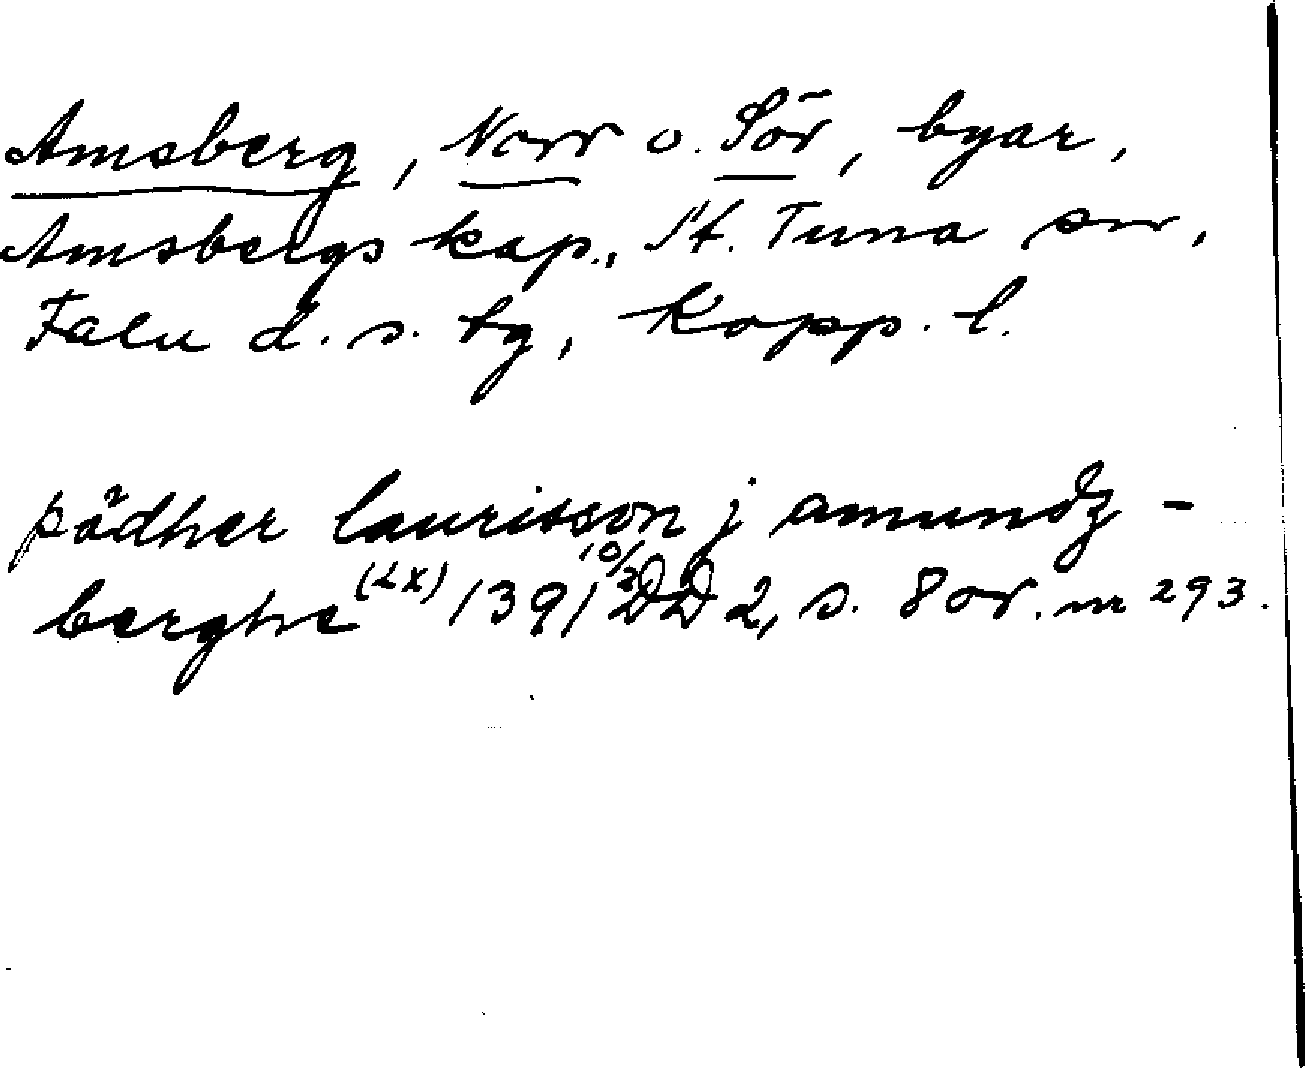 Amsberg, Norr o. Sör, byar,
Amsbergs kap., St. Tuna sn,
Falu d. s. tg, Kopp. l.
pädher laurisson j amundz-
berghe (2x) 1391 10/2 DD 2, s. 8 or. nr 293.